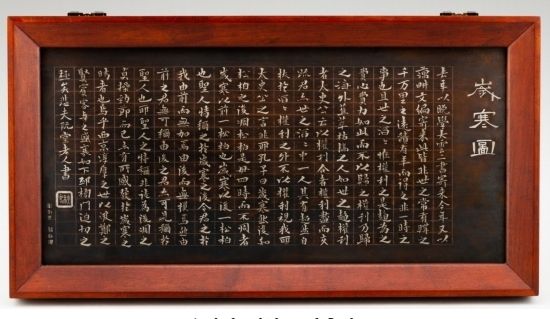 歲寒圖
去年以晩學大雲二書寄來今年又以
藕耕文編寄來此皆非世之常有購之
千万里之遠積有年而得之非一時之
事也且世之滔滔惟權利之是趨爲之
費心費力如此而不以歸之權利乃歸
之海外蕉萃枯槁之人如世之趨權利
者太史公云以權利合者權利盡而交
疎君亦世之滔滔中一人其有超然自
拔於滔滔權利之外不以權利視我耶
太史公之言非耶孔子曰歲寒然後知
松柏之後凋松柏是毋四時而不凋者
歲寒以前一松柏也歲寒以後一松柏
也聖人特稱之於歲寒之後今君之於
我由前而無加焉由後而無損焉然由
前之君無可稱由後之君亦可見稱於
聖人也耶聖人之特稱非徒爲後凋之
貞操勁節而已亦有所感發於歲寒之
時者也烏乎西京淳厚之世以汲鄭之
賢賓客與之盛衰如下邳榜門迫切之
極矣悲夫阮堂老人書